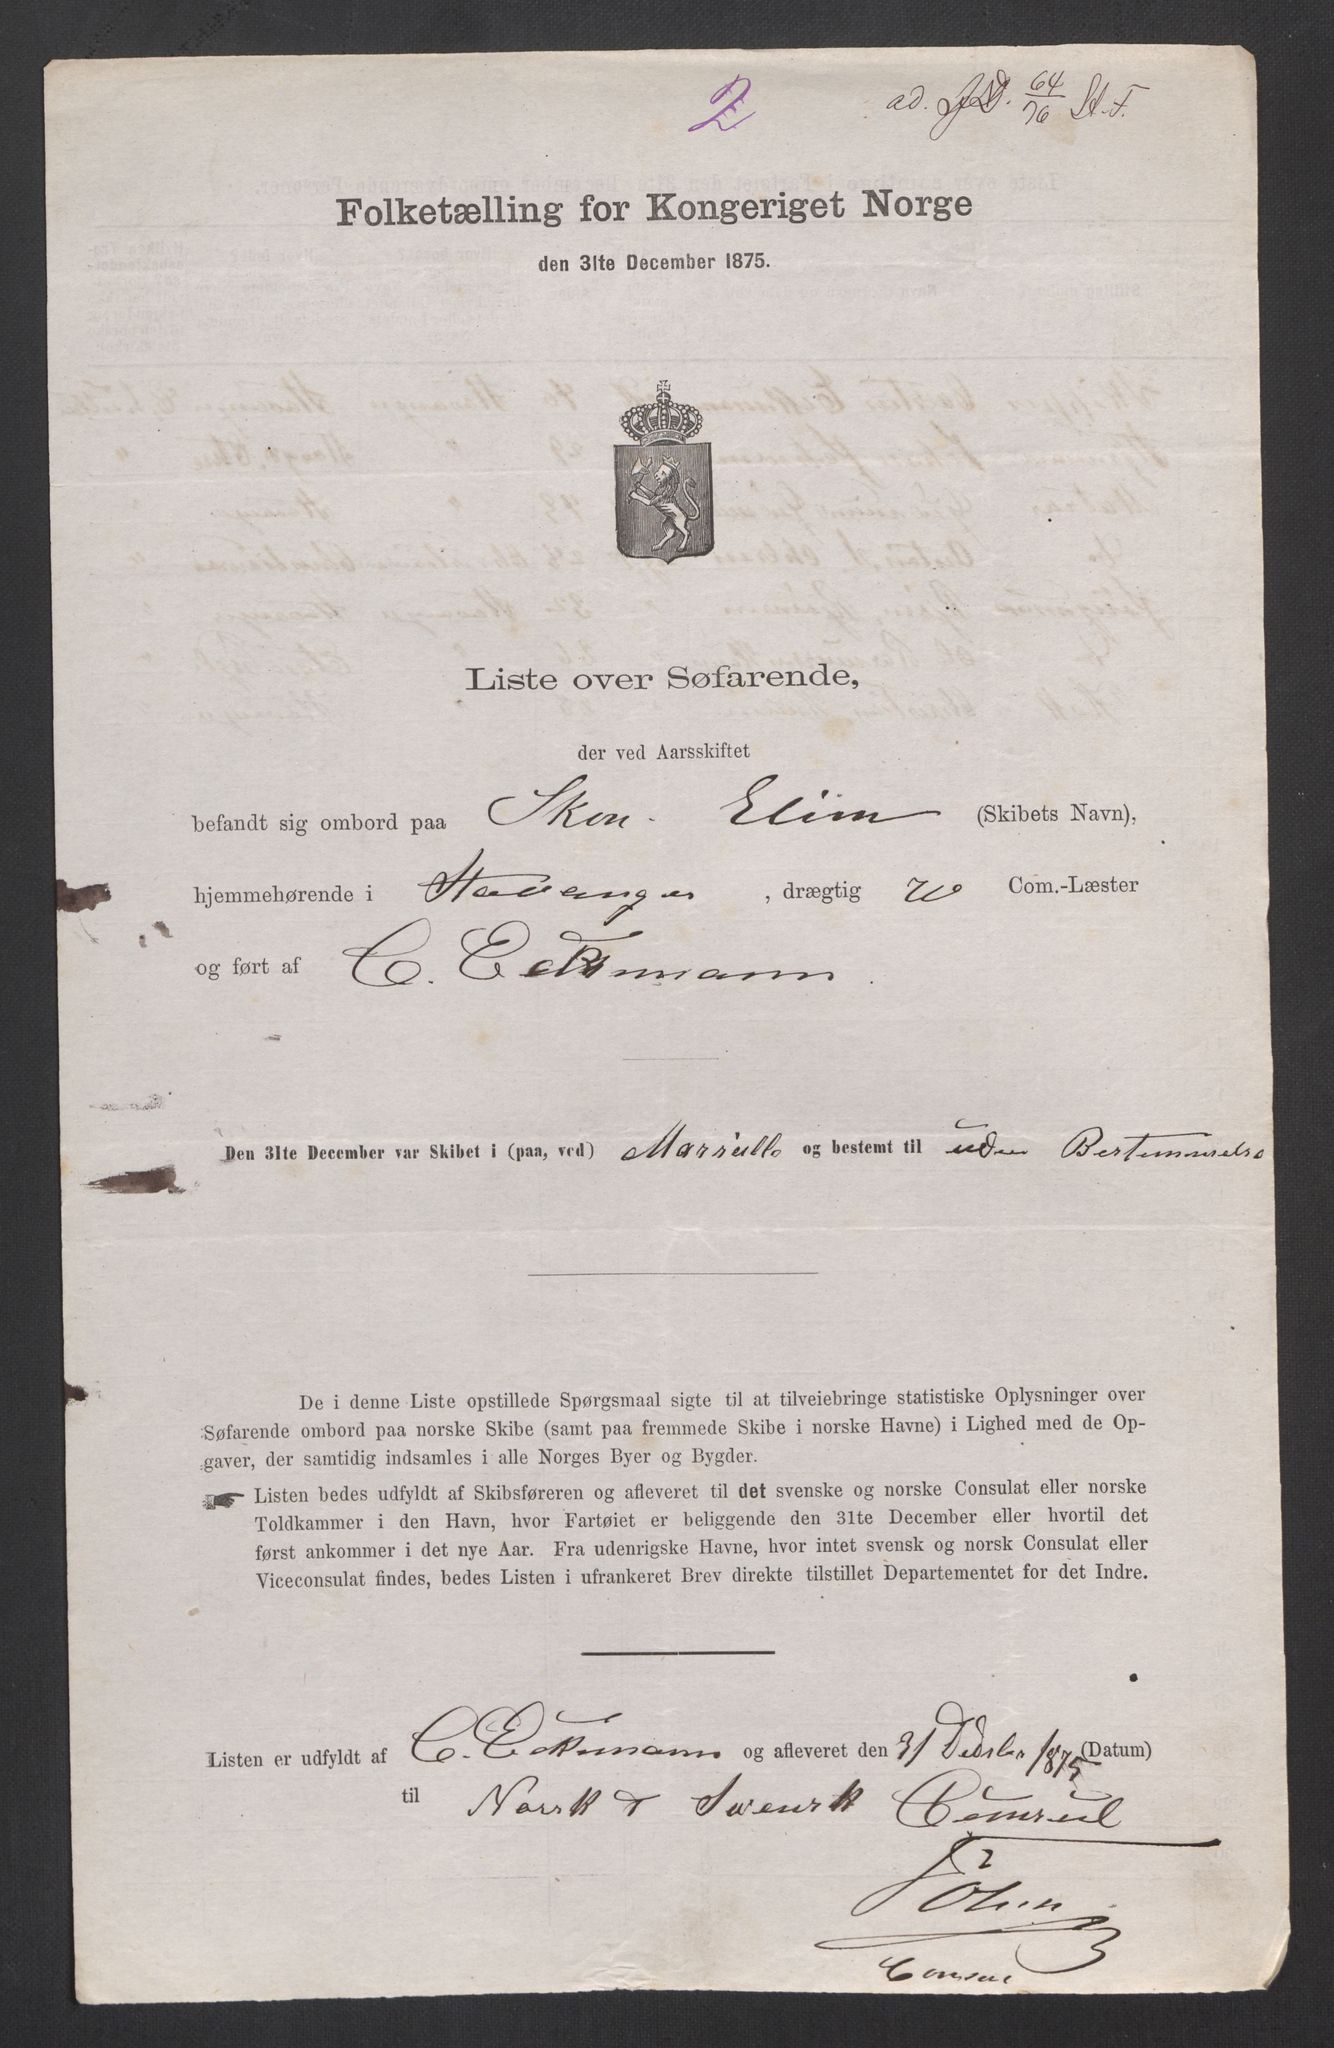 2
ad. JD. 64/76 St. F.
Folketælling for Kongeriget Norge
den 31te December 1875.
Liste over Søfarende,
der ved Aarsskiftet
befandt sig ombord paa Skon. Elim (Skibets Navn),
hjemmehørende i Stavanger, drægtig 70 Com.-Læster
og ført af C. Eckmann.
Den 31te December var Skibet i (paa, ved) Marseille og bestemt til uden Bestemmelse
De i denne Liste opstillede Spørgsmaal sigte til at tilveiebringe statistiske Oplysninger over
Søfarende ombord paa norske Skibe (samt paa fremmede Skibe i norske Havne) i Lighed med de Op-
gaver, der samtidig indsamles i alle Norges Byer og Bygder.
☛ Listen bedes udfyldt af Skibsføreren og afleveret til det svenske og norske Consulat eller norske
Toldkammer i den Havn, hvor Fartøiet er beliggende den 31te December eller hvortil det
først ankommer i det nye Aar. Fra udenrigske Havne, hvor intet svensk og norsk Consulat eller
Viceconsulat findes, bedes Listen i ufrankeret Brev direkte tilstillet Departementet for det Indre.
Listen er udfyldt af C. Eckmann og afleveret den 31 Decbr 1875 (Datum)
til Norsk & Svensk Consul
Consul